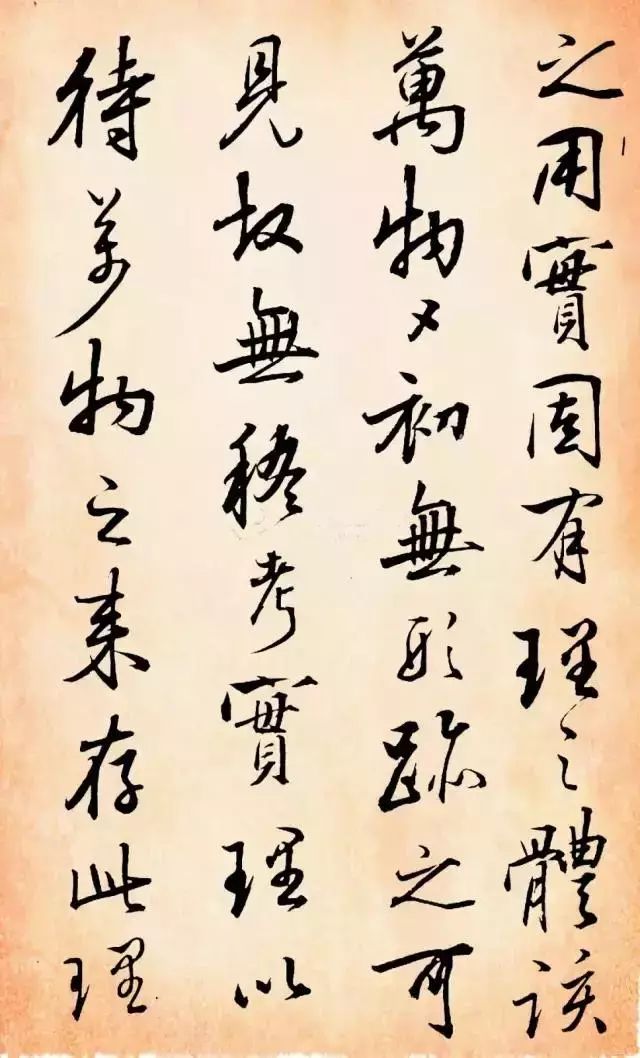 之用實固有理之體該
萬物又初無形跡之可
見故無稽考實理以
待萬物之來存此理